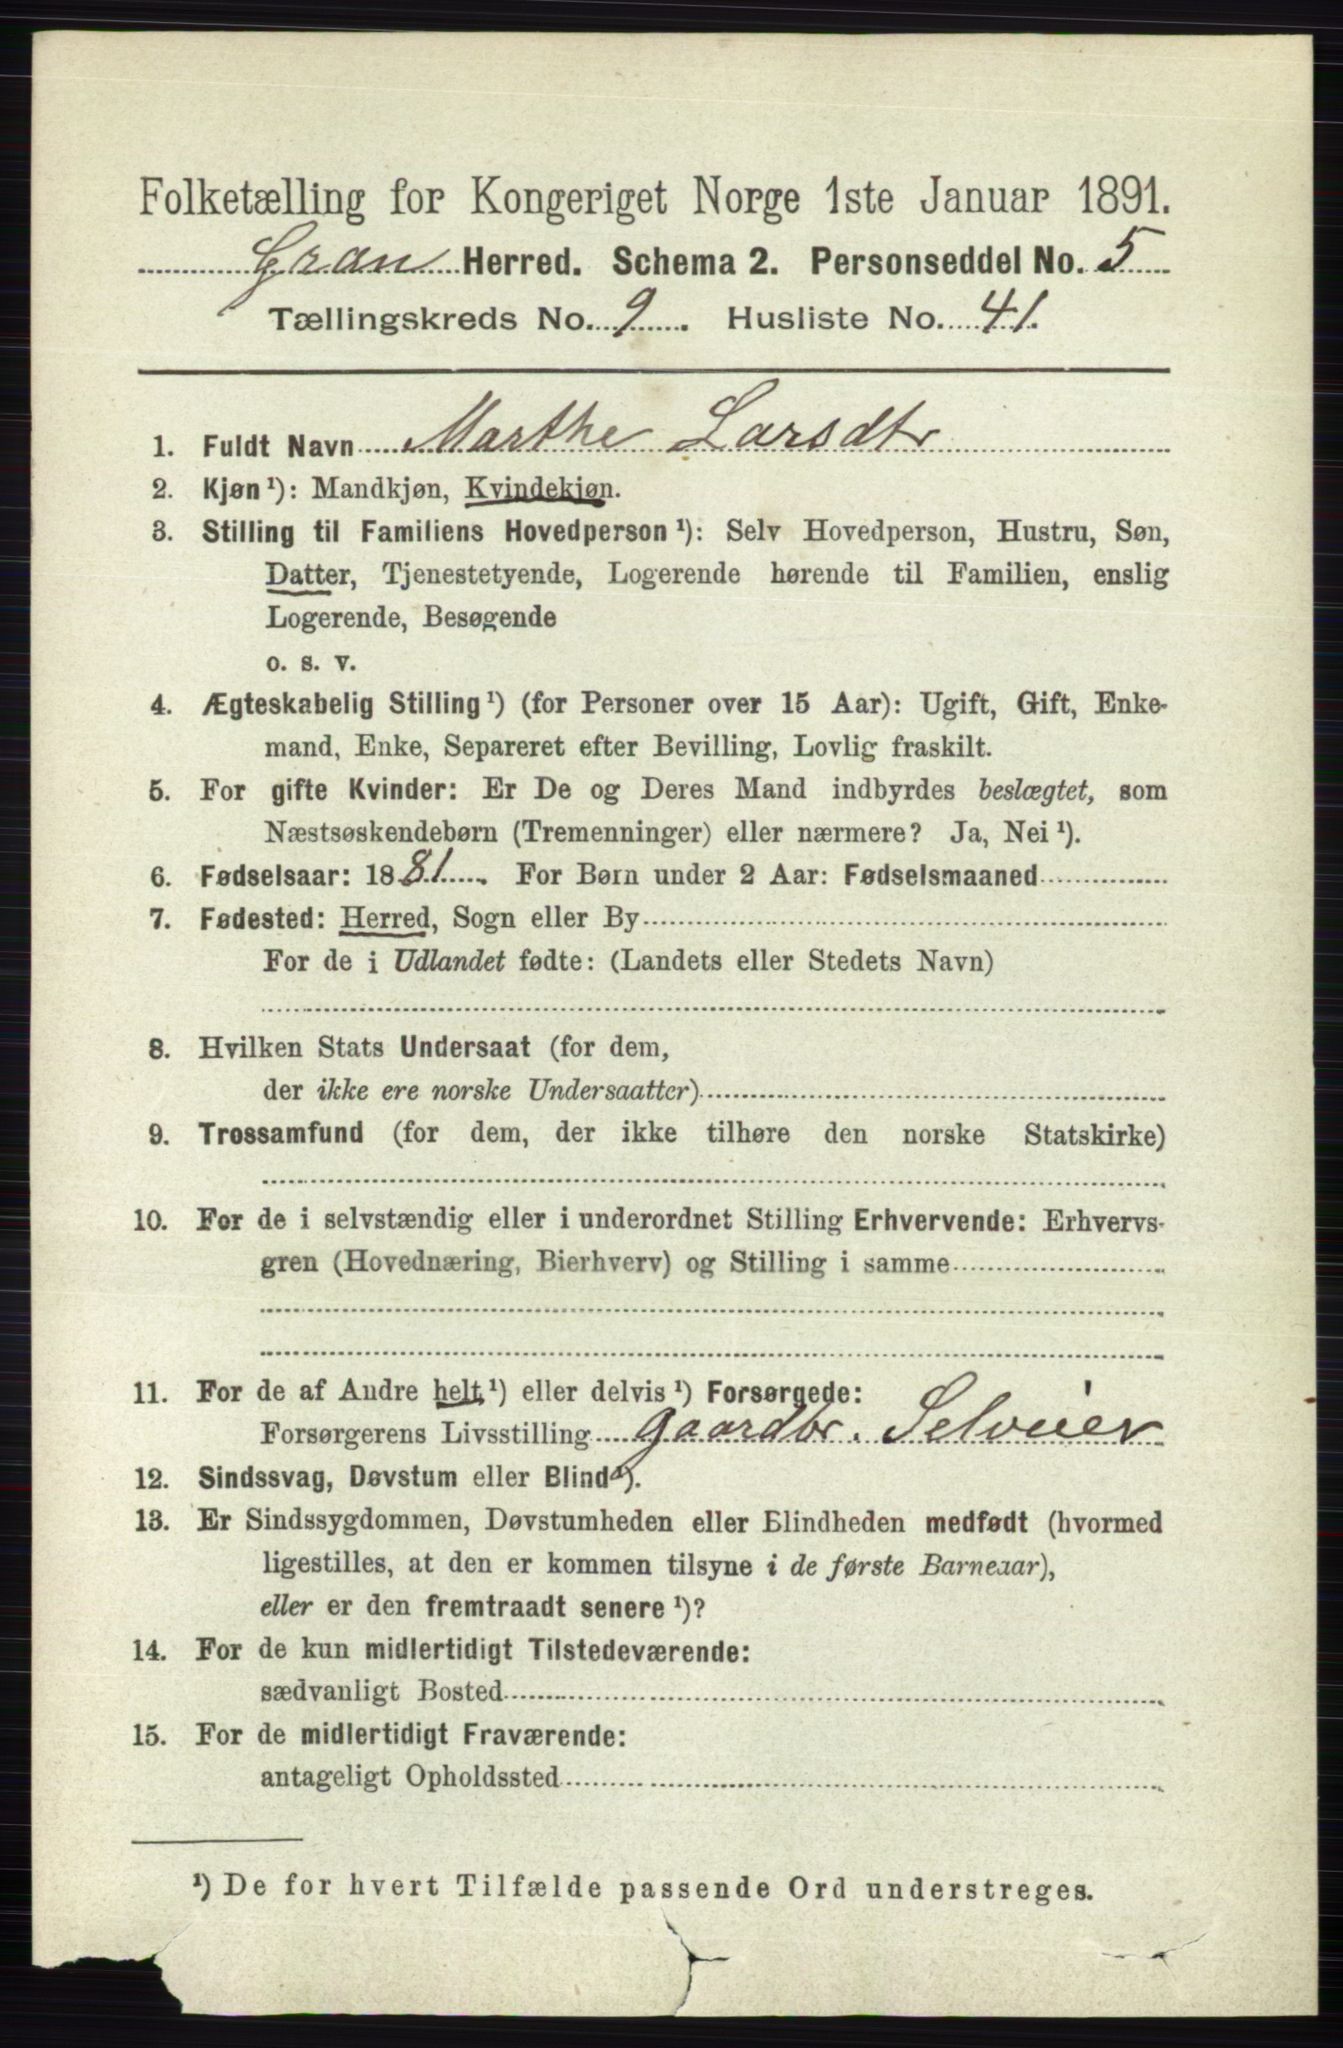 Folketælling for Kongeriget Norge 1ste Januar 1891.
Gran Herred. Schema 2. Personseddel No. 5
Tællingskreds No. 9. Husliste No. 41.
1. Fuldt Navn Marthe Larsdtr
2. Kjøn¹): Mandkjøn, Kvindekjøn.
3. Stilling til Familiens Hovedperson¹): Selv Hovedperson, Hustru, Søn,
Datter, Tjenestetyende, Logerende hørende til Familien, enslig
Logerende, Besøgende
o. s. v.
4. Ægteskabelig Stilling¹) (for Personer over 15 Aar): Ugift, Gift, Enke-
mand, Enke, Separeret efter Bevilling, Lovlig fraskilt.
5. For gifte Kvinder: Er De og Deres Mand indbyrdes beslægtet, som
Næstsøskendebørn (Tremenninger) eller nærmere? Ja, Nei¹).
6. Fødselsaar: 1881. For Børn under 2 Aar: Fødselsmaaned
7. Fødested: Herred, Sogn eller By
For de i Udlandet fødte: (Landets eller Stedets Navn)
8. Hvilken Stats Undersaat (for dem,
der ikke ere norske Undersaatter)
9. Trossamfund (for dem, der ikke tilhøre den norske Statskirke)
10. For de i selvstændig eller i underordnet Stilling Erhvervende: Erhvervs-
gren (Hovednæring, Bierhverv) og Stilling i samme
11. For de af Andre helt¹) eller delvis¹) Forsørgede:
Forsørgerens Livsstilling gaardbr. Selveier
12. Sindssvag, Døvstum eller Blind¹).
13. Er Sindssygdommen, Døvstumheden eller Blindheden medfødt (hvormed
ligestilles, at den er kommen tilsyne i de første Barneaar),
eller er den fremtraadt senere¹)?
14. For de kun midlertidigt Tilstedeværende:
sædvanligt Bosted
15. For de midlertidigt Fraværende:
antageligt Opholdssted
¹) De for hvert Tilfælde passende Ord understreges.